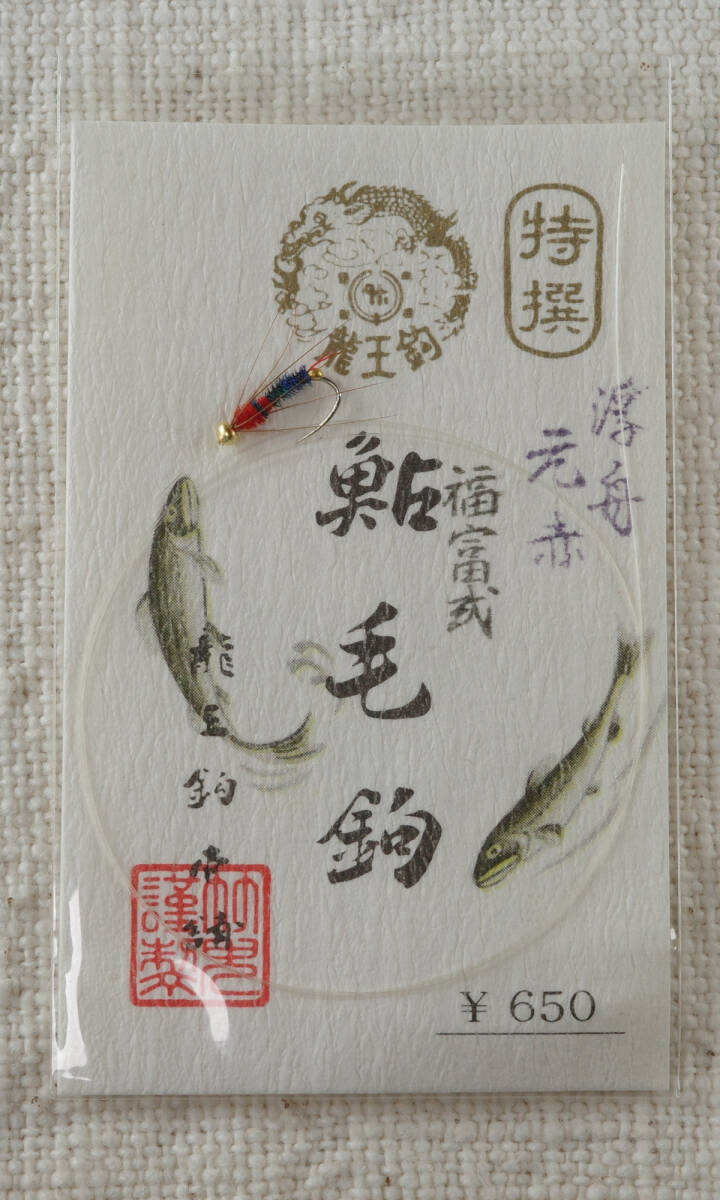 特撰
龍王釣
浮舟
元赤
福富式
鮎毛鈎
龍王釣本舗
謹製
¥ 650